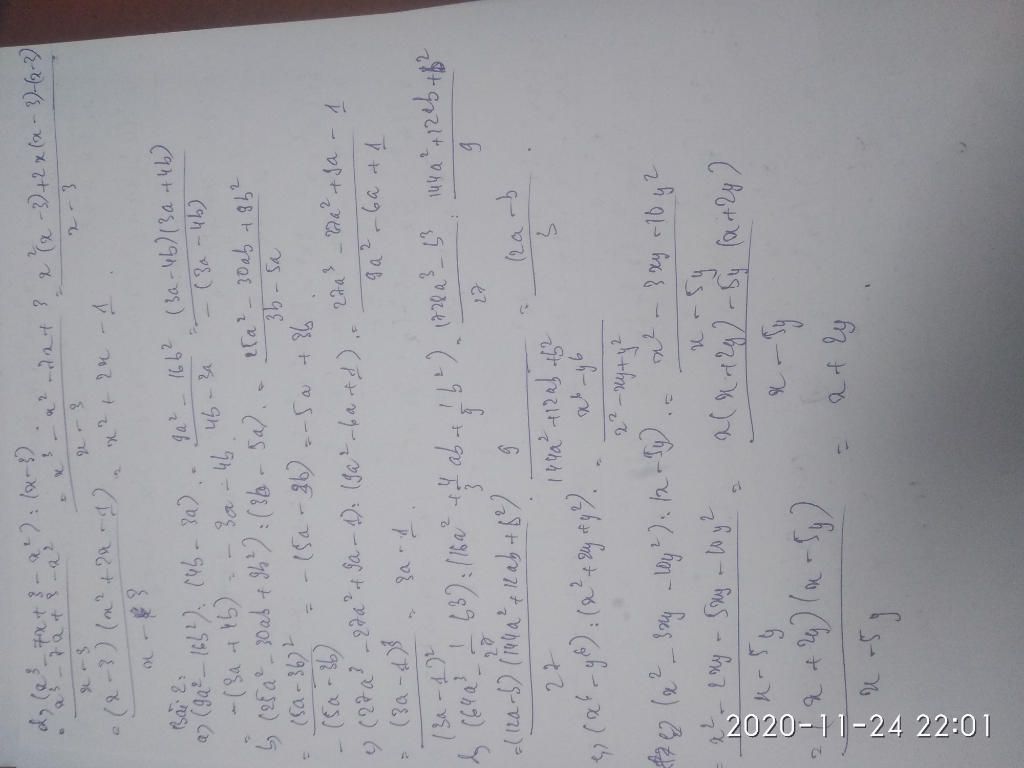 = x³ - 7x + 3 - x² = x³ - x² - 7x + 3 = x²(x - 3) + 2x(x - 3) - (x - 3)
x - 3
= (x - 3)(x² + 2x - 1) = x² + 2x - 1.
Bài 2:
a) (9a² - 16b²) : (4b - 3a) = 9a² - 16b² = (3a - 4b)(3a + 4b)
4b - 3a - (3a - 4b)
- (3a + 4b) = - 3a - 4b
b) (25a² - 30ab + 9b²) : (3b - 5a) = 25a² - 30ab + 9b²
3b - 5a
= (5a - 3b)² = - (5a - 3b) = - 5a + 3b
- (5a - 3b)
c) (27a³ - 27a² + 9a - 1) : (9a² - 6a + 1) = 27a³ - 27a² + 9a - 1
9a² - 6a + 1
= (3a - 1)³ = 3a - 1
(3a - 1)²
(64a³ - 1/27 b³) : (16a² + 4/3 ab + 1/9 b²) = 1728a³ - b³ : 144a² + 12ab + b²
27 9
= (12a - b)(144a² + 12ab + b²) . 9 = (12a - b)
27 144a² + 12ab + b² 3
(x⁶ - y⁶) : (x² + xy + y²) = x⁶ - y⁶
x² - xy + y²
(x² - 3xy - 10y²) : (x - 5y) = x² - 3xy - 10y²
x - 5y
= x² + 2xy - 5xy - 10y² = x(x + 2y) - 5y (x + 2y)
x - 5y x - 5y
= (x + 2y)(x - 5y) = x + 2y
x - 5y
2020-11-24 22:01